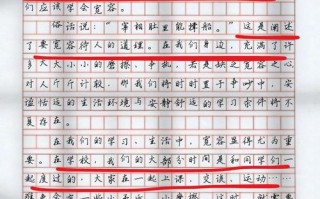 们应该学会宽容。
俗话说：“宰相肚里能撑船。”这是阐述
了要宽容待人的道理。在我们身边，充满了许
多大大小小的磨擦、争执，若是缺乏宽容之心
对人斤斤计较，那我们将时时置于争吵中，安
谧恬适的生活环境与安静舒适的学习条件将不
复存在。
在我们的学习、生活中，宽容显得尤为重
要。在学校，我们的大部分时间是和同学们一
起度过的，大家在一起上课，交谈、运动……